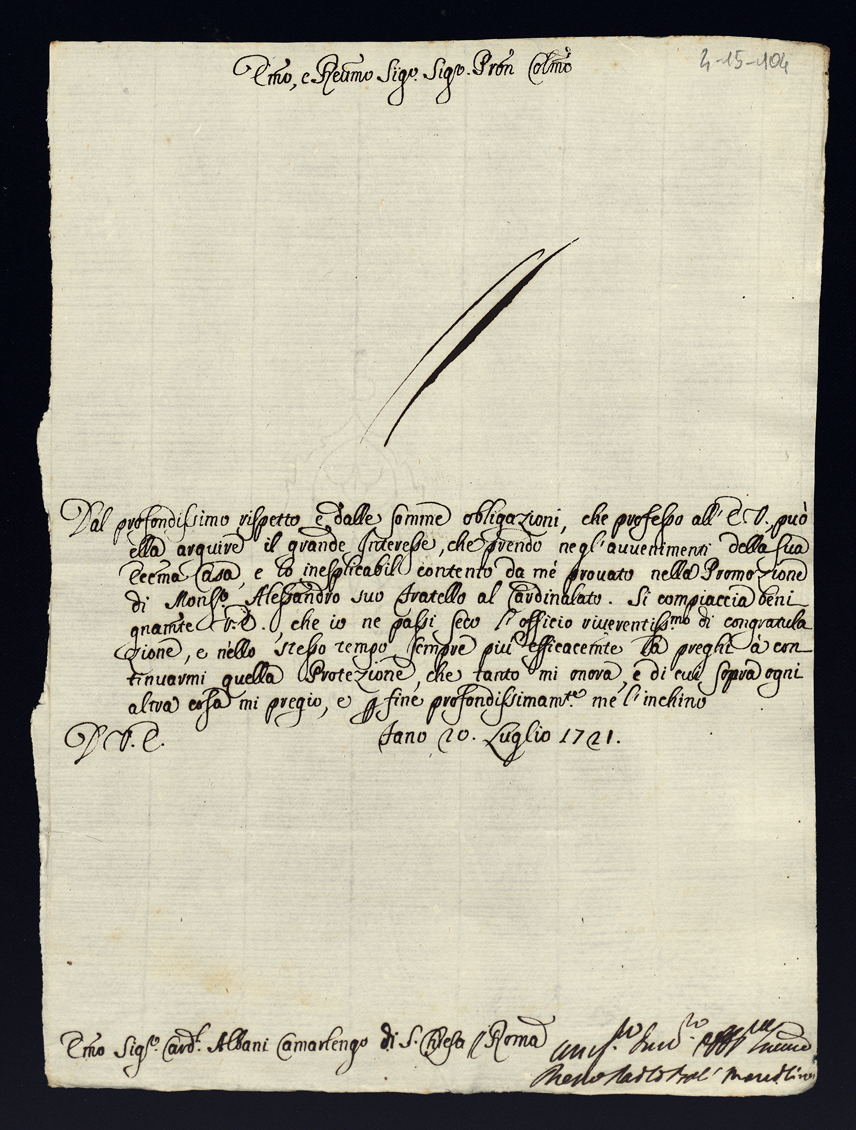 4-15-104
Emo, e Reumo Sigr. Sigr. Pron Colmo
Dal profondissimo rispetto e dalle somme obligazioni, che professo all' E V., può
ella arguire il grande Interesse, che prendo negl' auvenimenti della Sua
Eccma Casa, e lo inesplicabil contento da me provato nella Promozione
di Monsr. Alessandro suo fratello al Cardinalato. Si compiaccia beni
gnamte V. E. che io ne passi seco l' officio riverentissmo di congratula
zione, e nello stesso tempo sempre piu efficacemte la preghi à con
tinuarmi quella Protezione, che tanto mi onora, e di cui sopra ogni
altra cosa mi pregio, e fine profondissimamte me l' inchino
D V. E. Fano 20. Luglio 1721.
Emo Sigr. Card. Albani Camarlengo di S. Chiesa / Roma